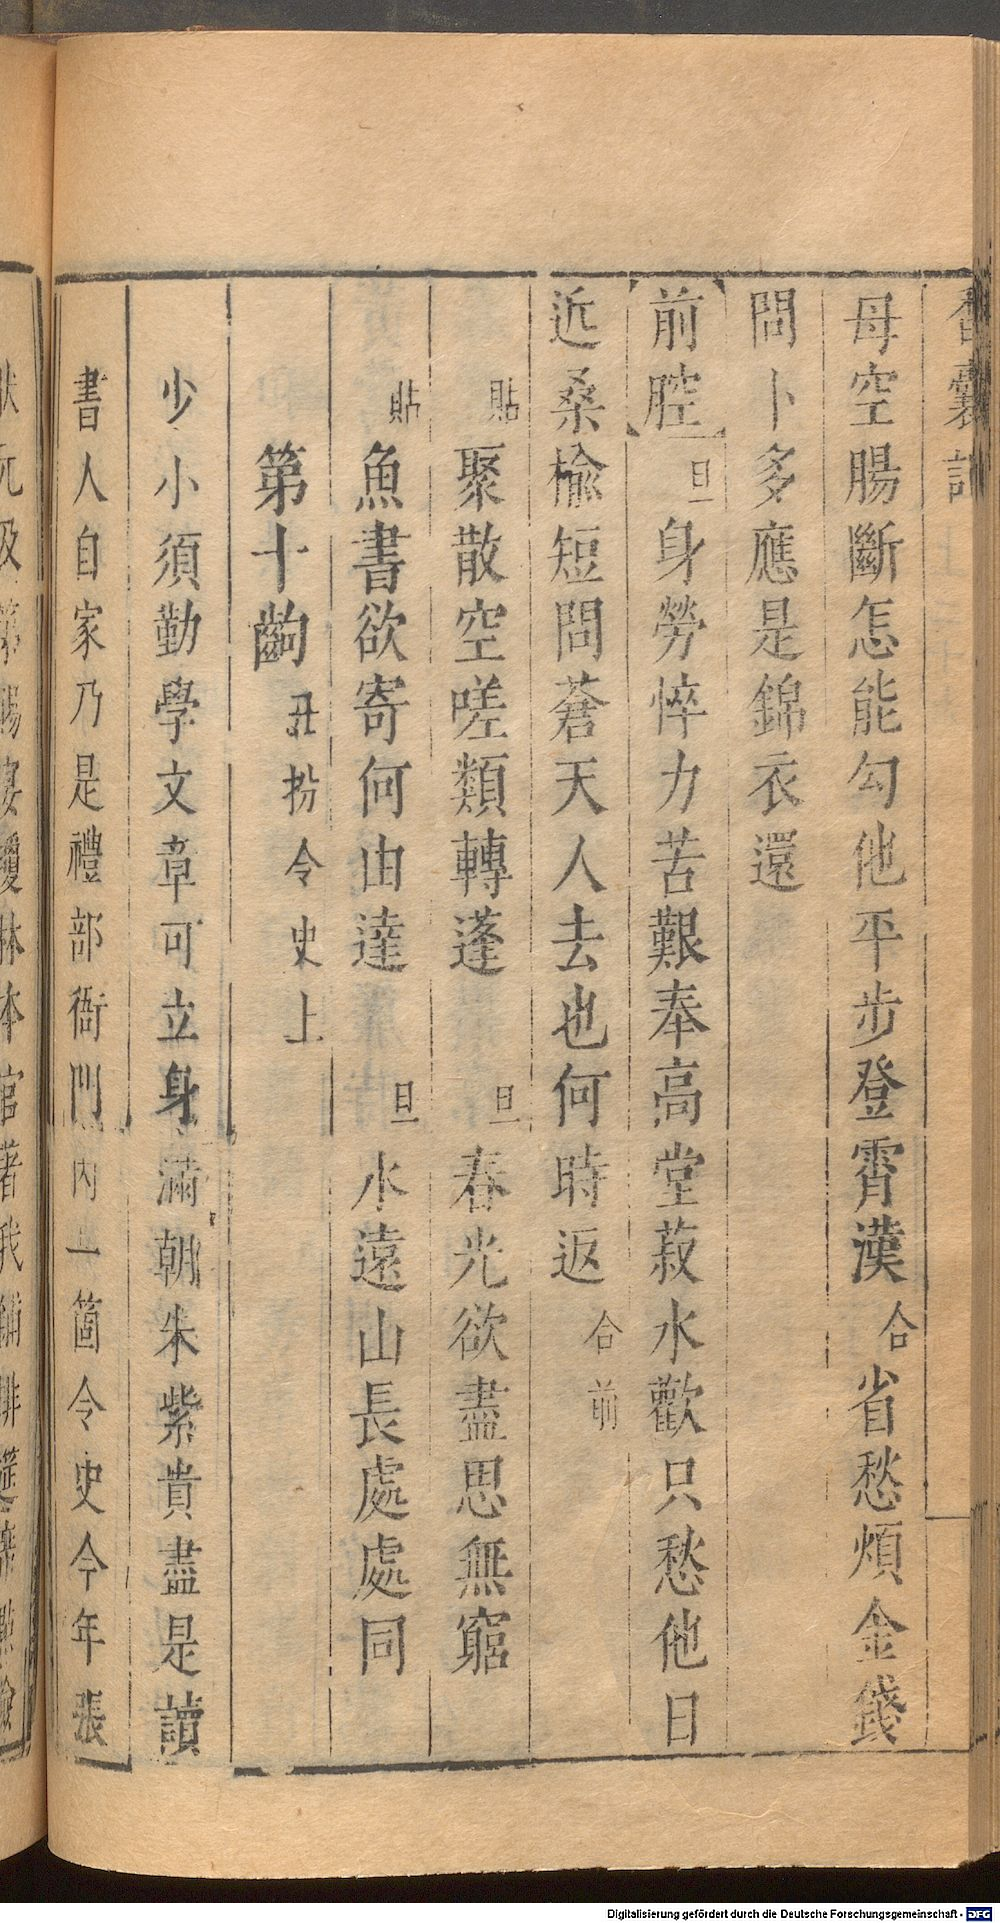 香囊記
母空腸斷怎能勾他平步登霄漢合省愁煩金錢
問卜多應是錦衣還
前腔旦身勞悴力苦艱奉高堂菽水歡只愁他日
近桑榆短問蒼天人去也何時返合前
貼聚散空嗟類轉蓬旦春光欲盡思無窮
貼魚書欲寄何由達旦水遠山長處處同
第十齣丑扮令史上
少小須勤學文章可立身滿朝朱紫貴盡是讀
書人自家乃是禮部衙門內一箇令史今年張
狀元及第賜宴瓊林本官著我鋪排筵席點檢
Digitalisierung gefördert durch die Deutsche Forschungsgemeinschaft - DFG